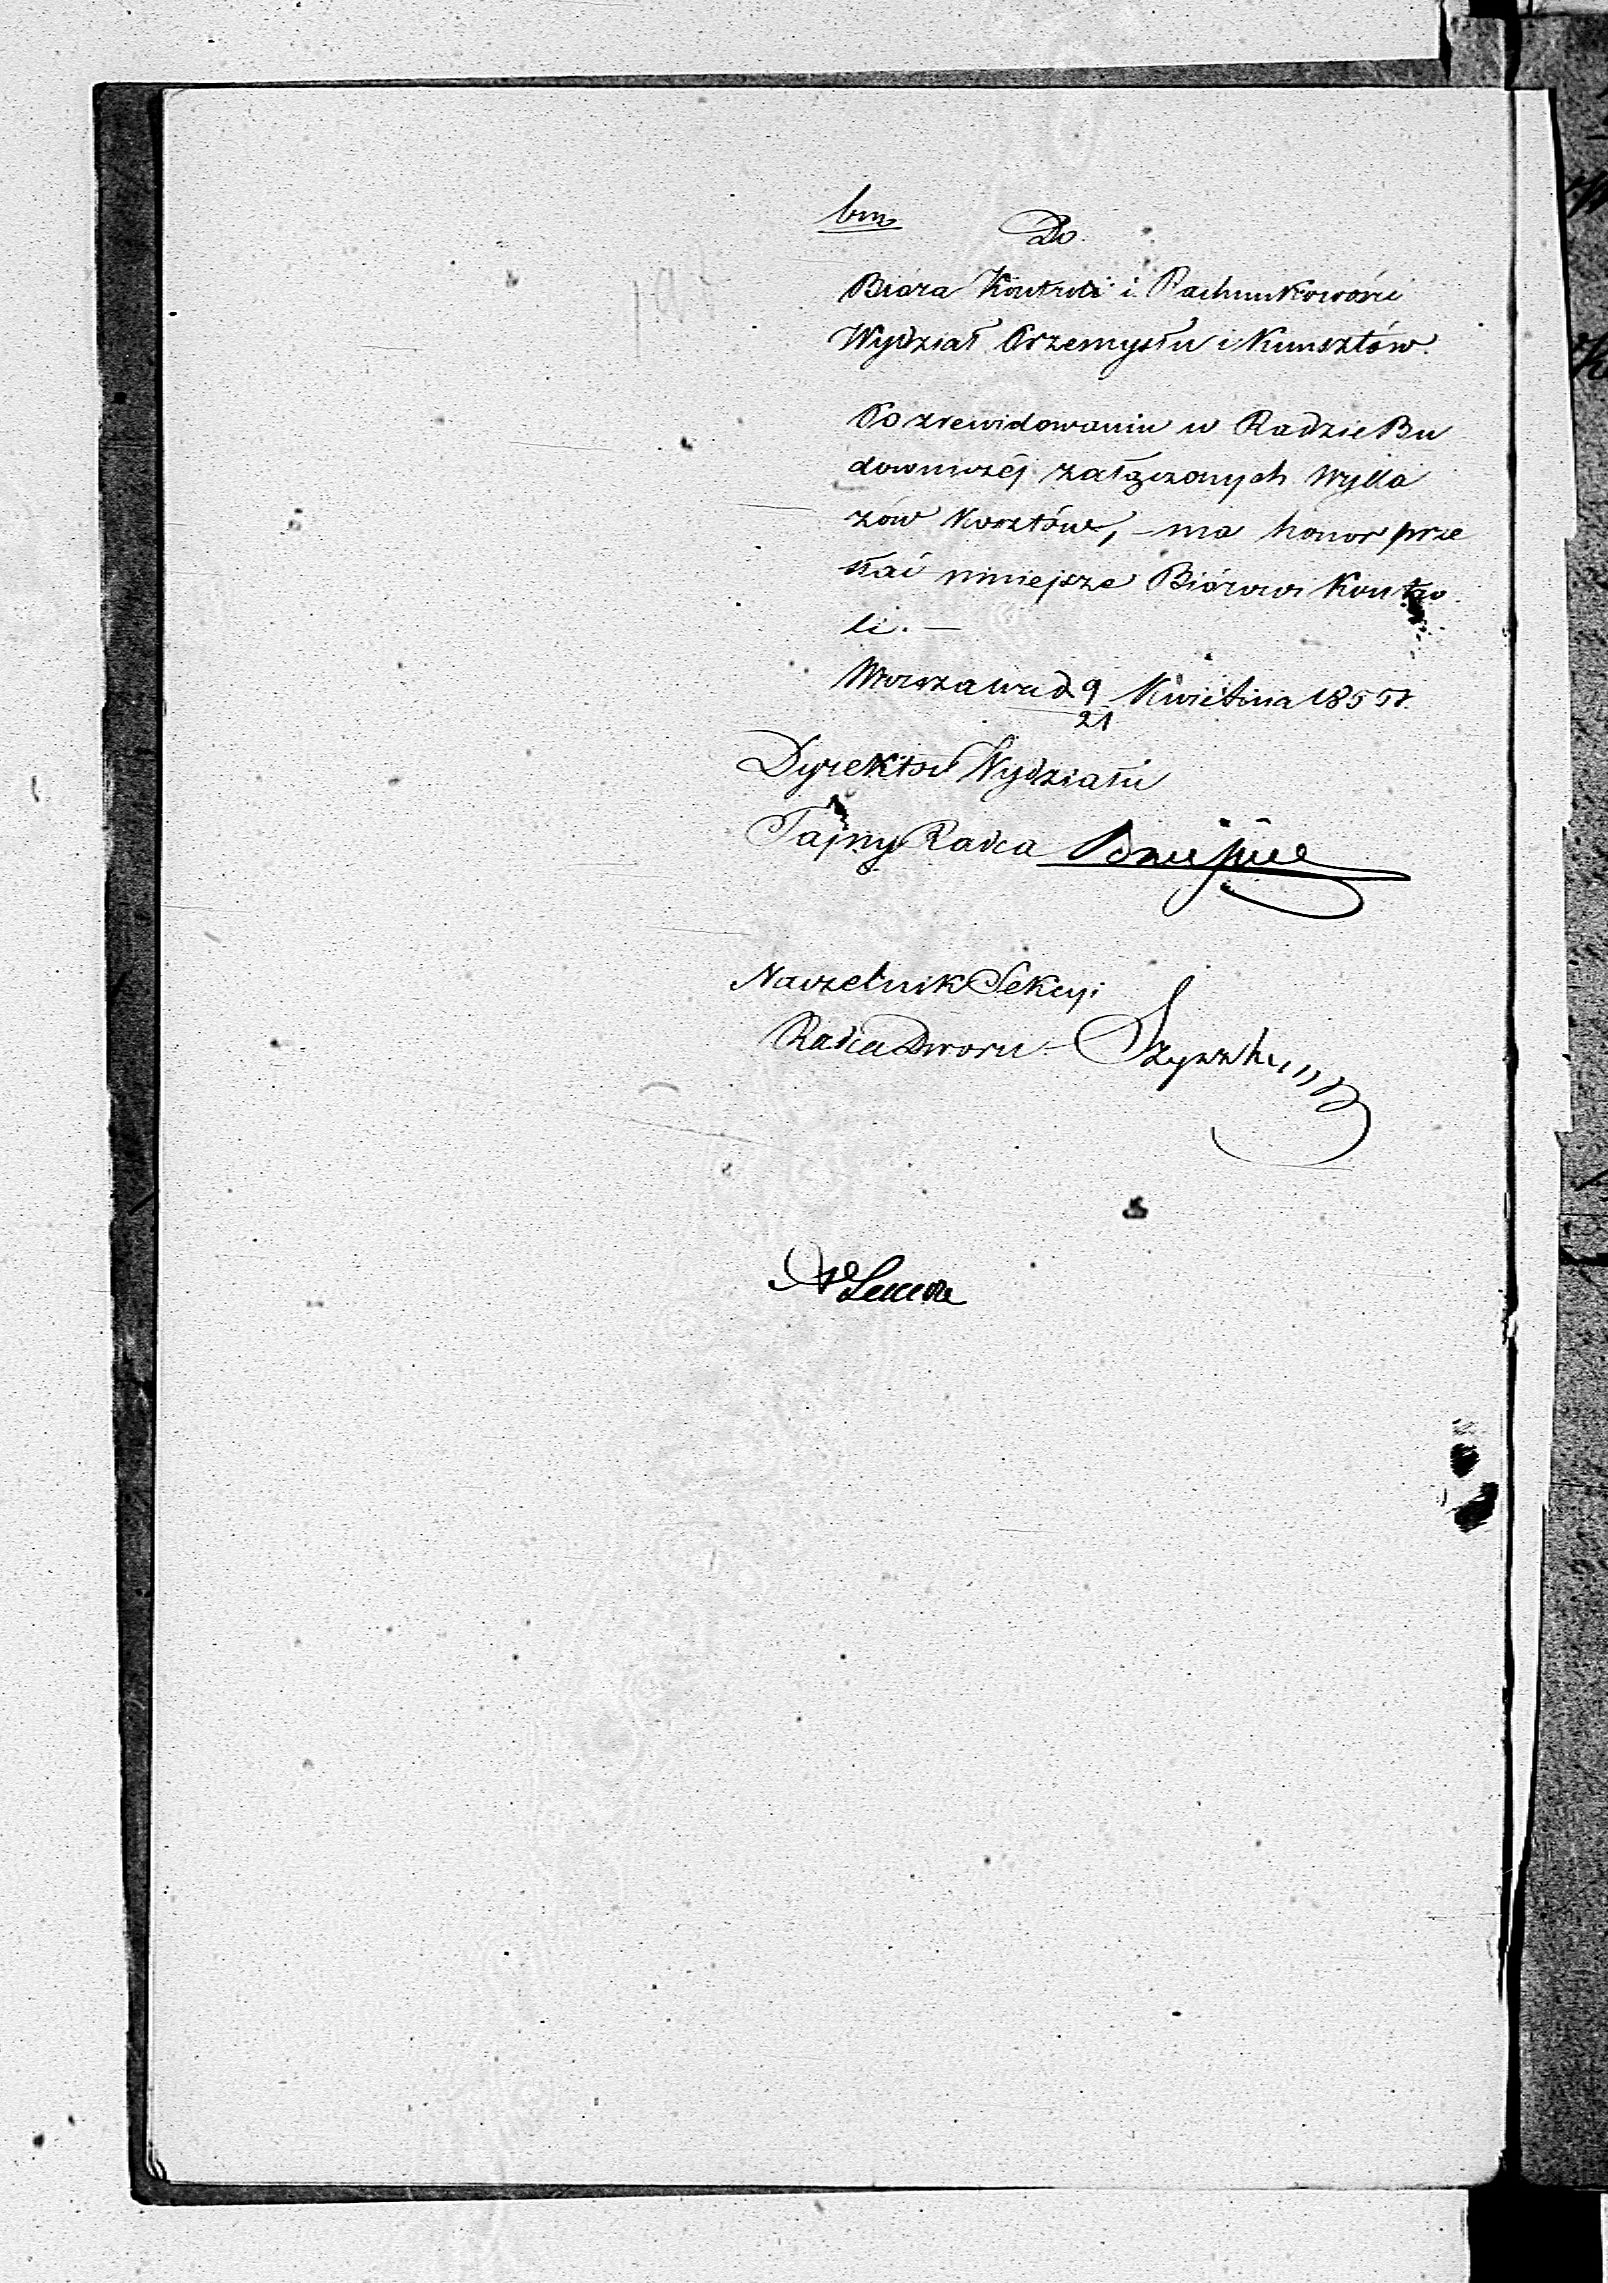 bm
Do
Bióra Kontroli i Rachunkowości
Wydział Przemysłu i Kunsztów.
Po zrewidowaniu w Radzie Bu
downiczéj załączonych Wyka
zów Kosztów, – ma honor prze
słać niniejsze Biórowi Kontro
li. —
Warszawa d 9/21 Kwietnia 1855 r.
Dyrektor Wydziału
Tajny Radca
Naczelnik Sekcyi
Radca Dworu